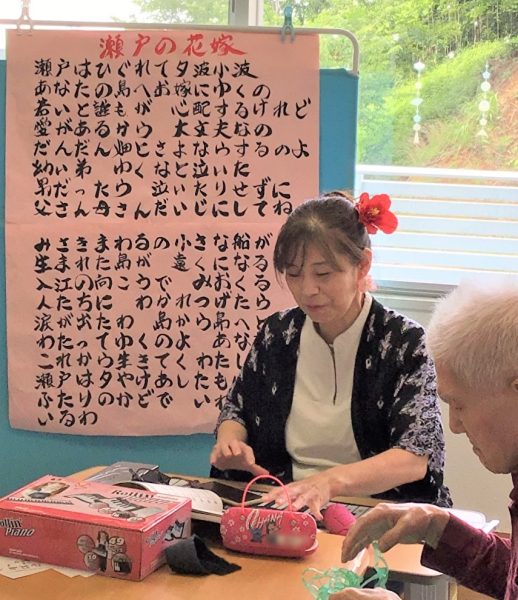 瀬戸の花嫁
瀬戸はひぐれて夕波小波
あなたの島へお嫁にゆくの
若いと誰もが心配するけれど
愛があるから大丈夫なの
だんだん畑とさよならするのよ
幼い弟 ゆくなと泣いた
男だったら 泣いたりせずに
父さん母さんだいじにしてね
みさきまわるの小さな船が
生まれた島が遠くになる
入江の向こうで みおくる
人たちに わかれつげたら
涙が出たわ 島から島へと
わたってゆくのよ あな
これから生きてく わた
瀬戸は夕やけ あした
ふたりのかどで
いるわ
Rollin' Piano